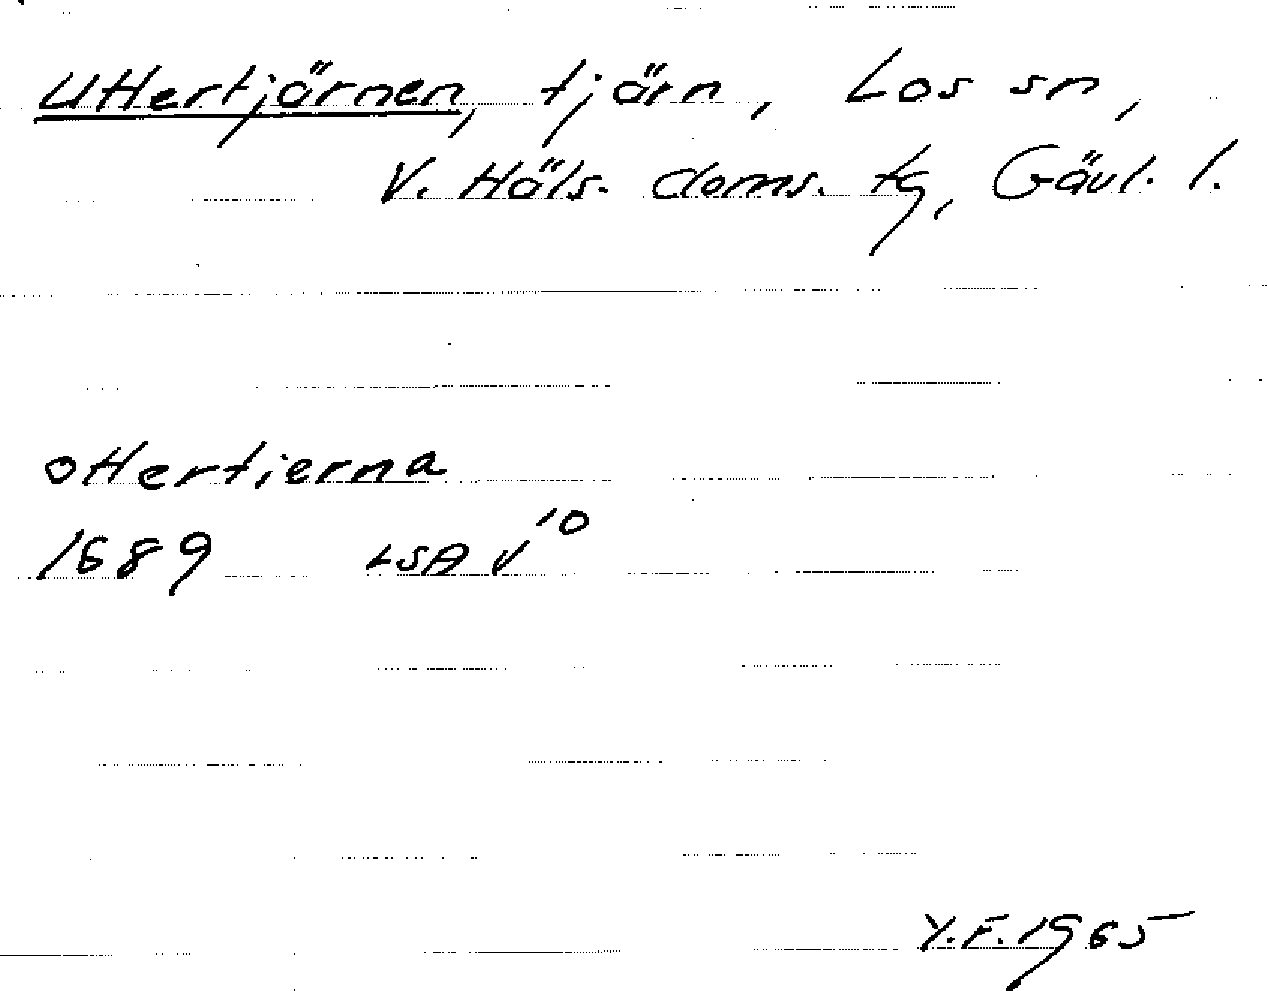 Uttertjärnen, tjärn, Los sn,
V. Häls. doms. tg, Gävl. l.
ottertierna
1689 LSA V10
Y.F. 1965